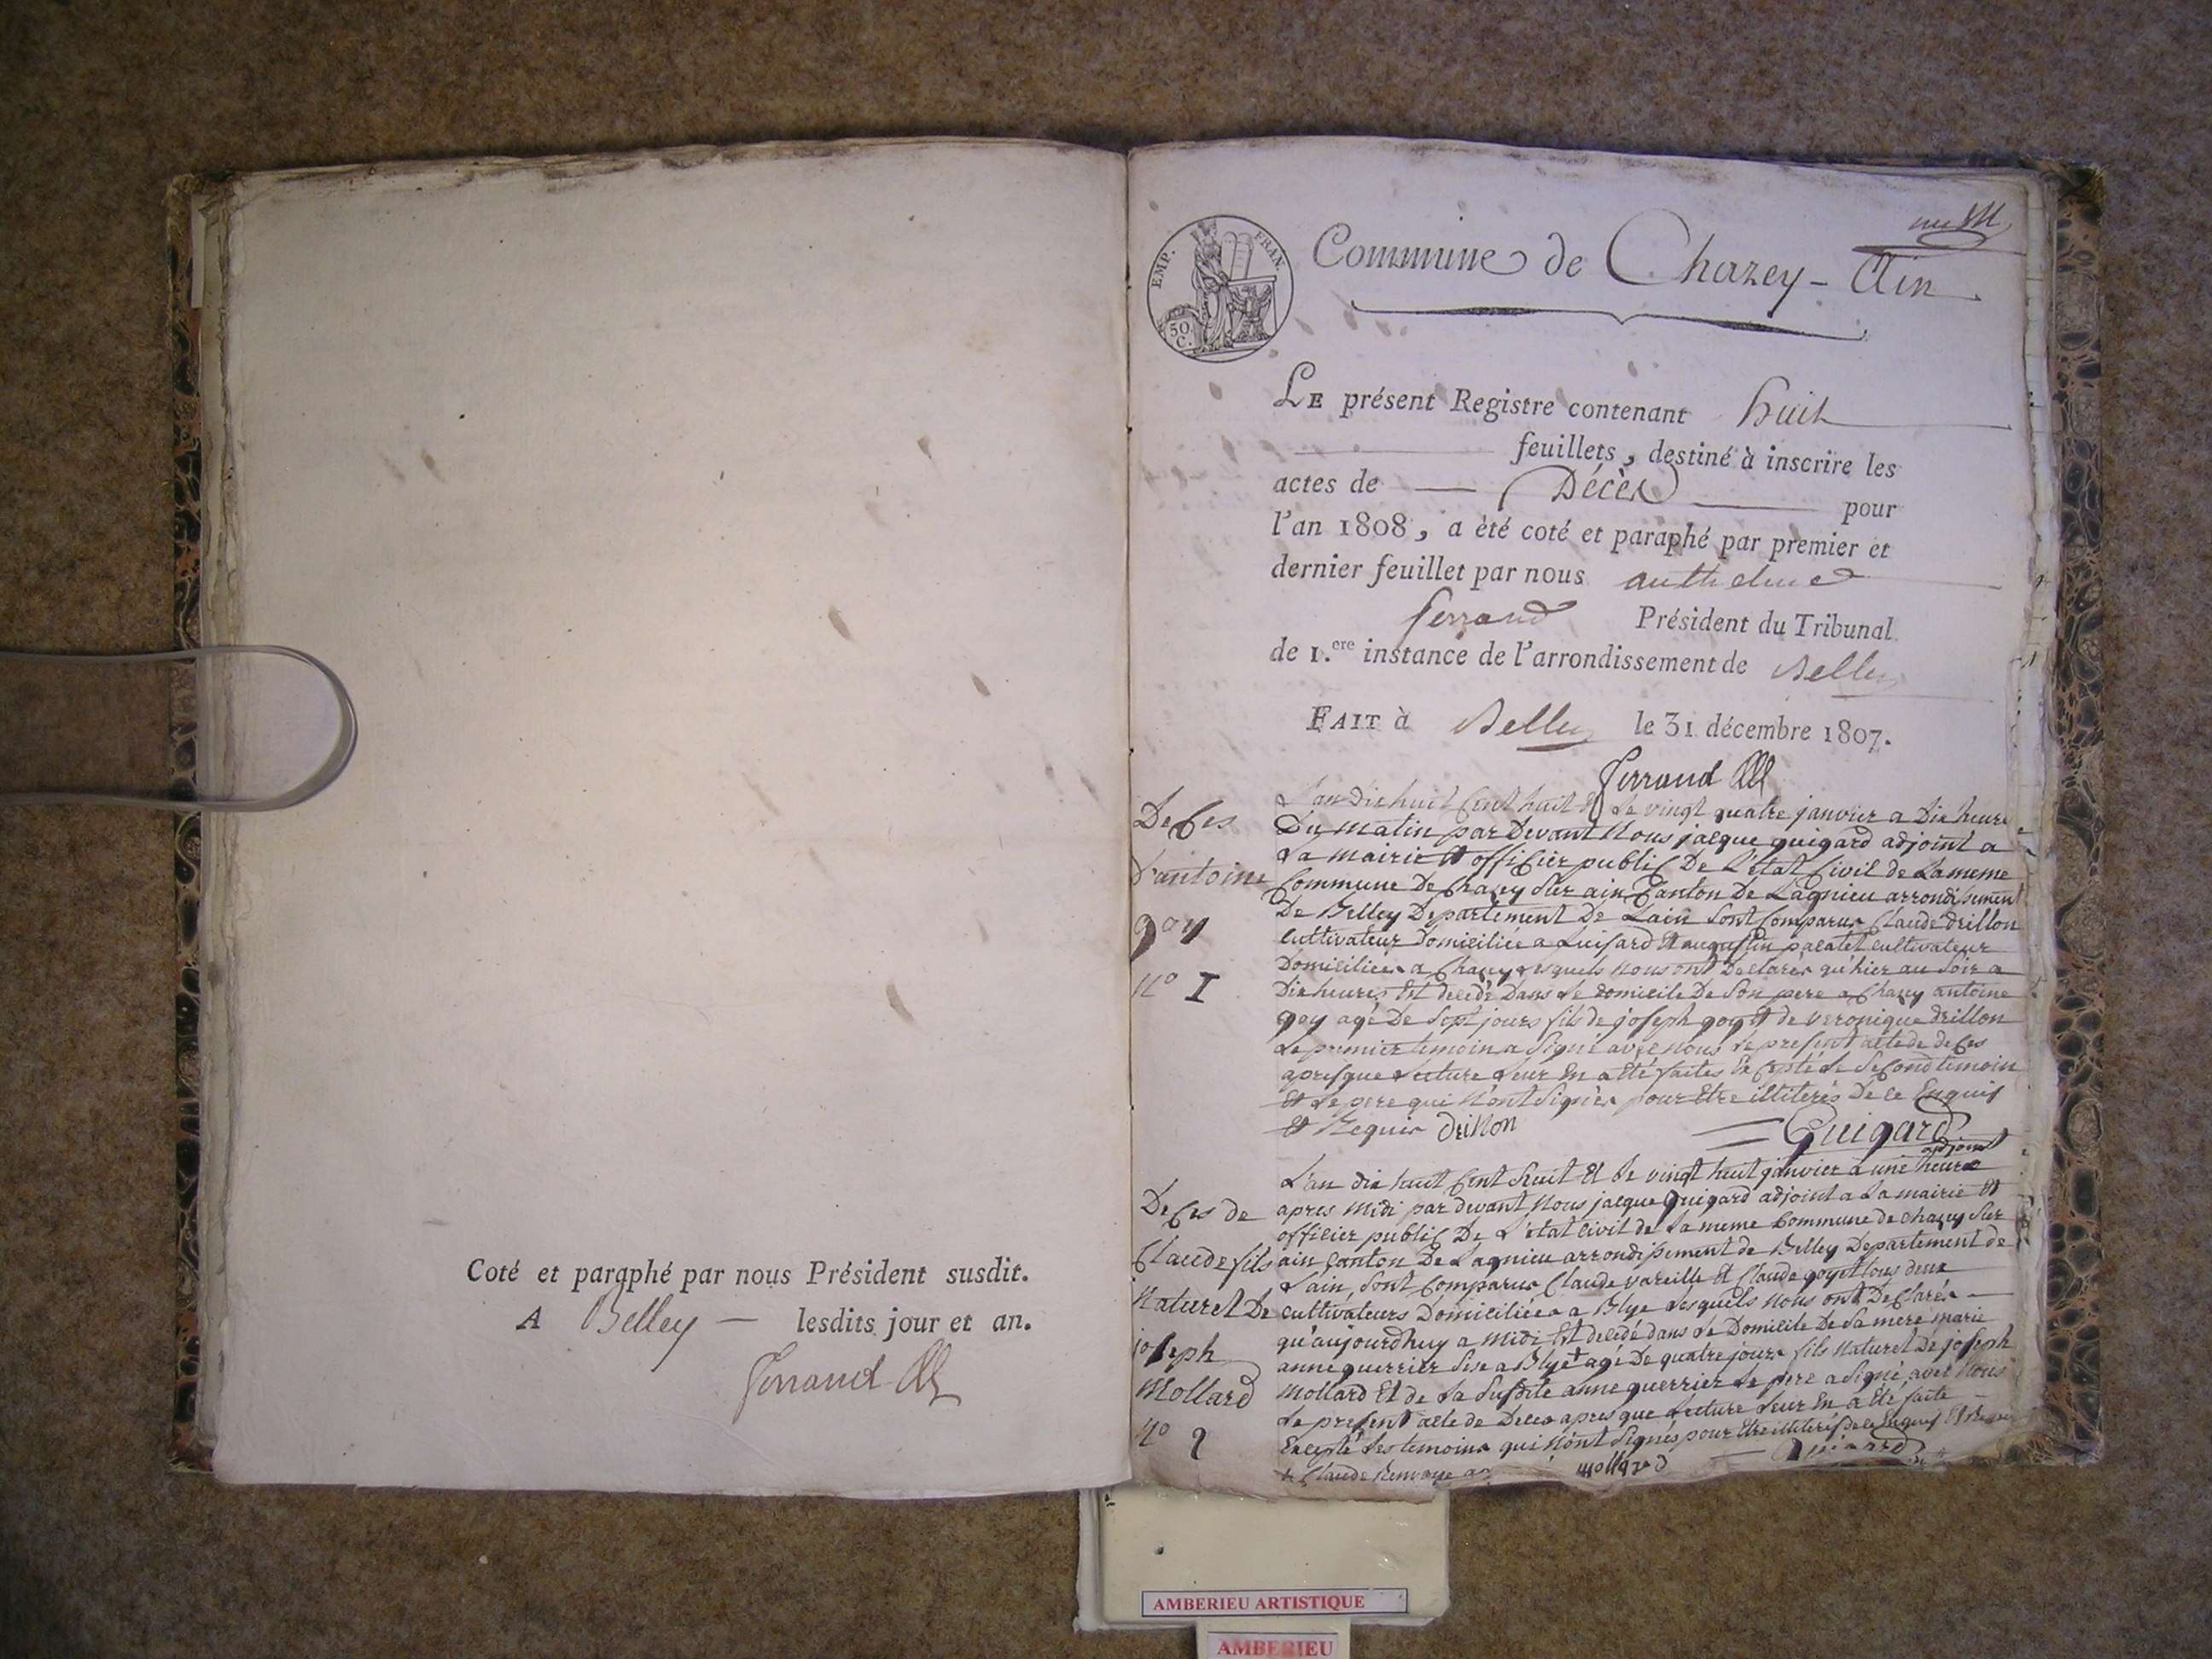 Coté et paraphé par nous Président susdit.
A Belley — lesdits jour et an.
Ferrand
EMP. FRAN.
50 C.
Commune de Chazey-Ain
LE présent Registre contenant huit
feuillets, destiné à inscrire les
actes de — Décès — pour
l'an 1808, a été coté et paraphé par premier et
dernier feuillet par nous anthelme
ferrand Président du Tribunal
de 1.ere instance de l'arrondissement de Belley
FAIT à Belley le 31 décembre 1807.
Ferrand
Deces
d'antoine
goy
N° 1
L'an dix huit cent huit et le vingt quatre janvier a dix heure
Du matin par Devant Nous jacque guigard adjoint a
La mairie et officier public De L'état civil de La meme
Commune De Chazey sur ain Canton De Lagnieu arrondissement
De Belley Departement De Lain sont Comparus Claude drillon
cultivateur Domiciliée a Luisard et augustin palatet cultivateur
Domiciliées a Chazey Lesquels nous ont Declarés qu'hier au soir a
Dix heures est decedé Dans Le domicile De son pere a Chazey antoine
goy agé De sept jours fils de joseph goy et de veronique drillon
Le premier temoin a signé avec nous Le present acte de deces
apres que Lecture Leur en a été faites Excepté Le second temoin
et Le pere qui n'ont signés pour être illiterés De ce Enquis
et Requis drillon
Guigard
adjoint
Deces de
Claude fils
Naturel De
joseph
Mollard
N° 2
L'an dix huit cent huit et Le vingt huit janvier à une heure
apres Midi par devant Nous jacque Guigard adjoint a La mairie et
officier public De L'état civil de La meme Commune de chazey sur
ain Canton De Lagnieu arrondissement de Belley Departement de
L'ain, sont Comparus Claude vareille et Claude goyet tous deux
cultivateurs Domiciliées a Blye Lesquels nous ont Declarés —
qu'aujourdhuy a midi Est decedé dans Le Domicile De sa mere marie
anne guerrier sise a Blye + agé De quatre jours fils Naturel De joseph
Mollard et de La susdite anne guerrier Le pere a signé avec Nous
Le present acte de Deces apres que Lecture Leur en a été faite
Excepté Les temoins qui n'ont signés pour être illiterés de ce Enquis et Requis
+ Claude
mollard
Guigard
AMBERIEU ARTISTIQUE
AMBERIEU